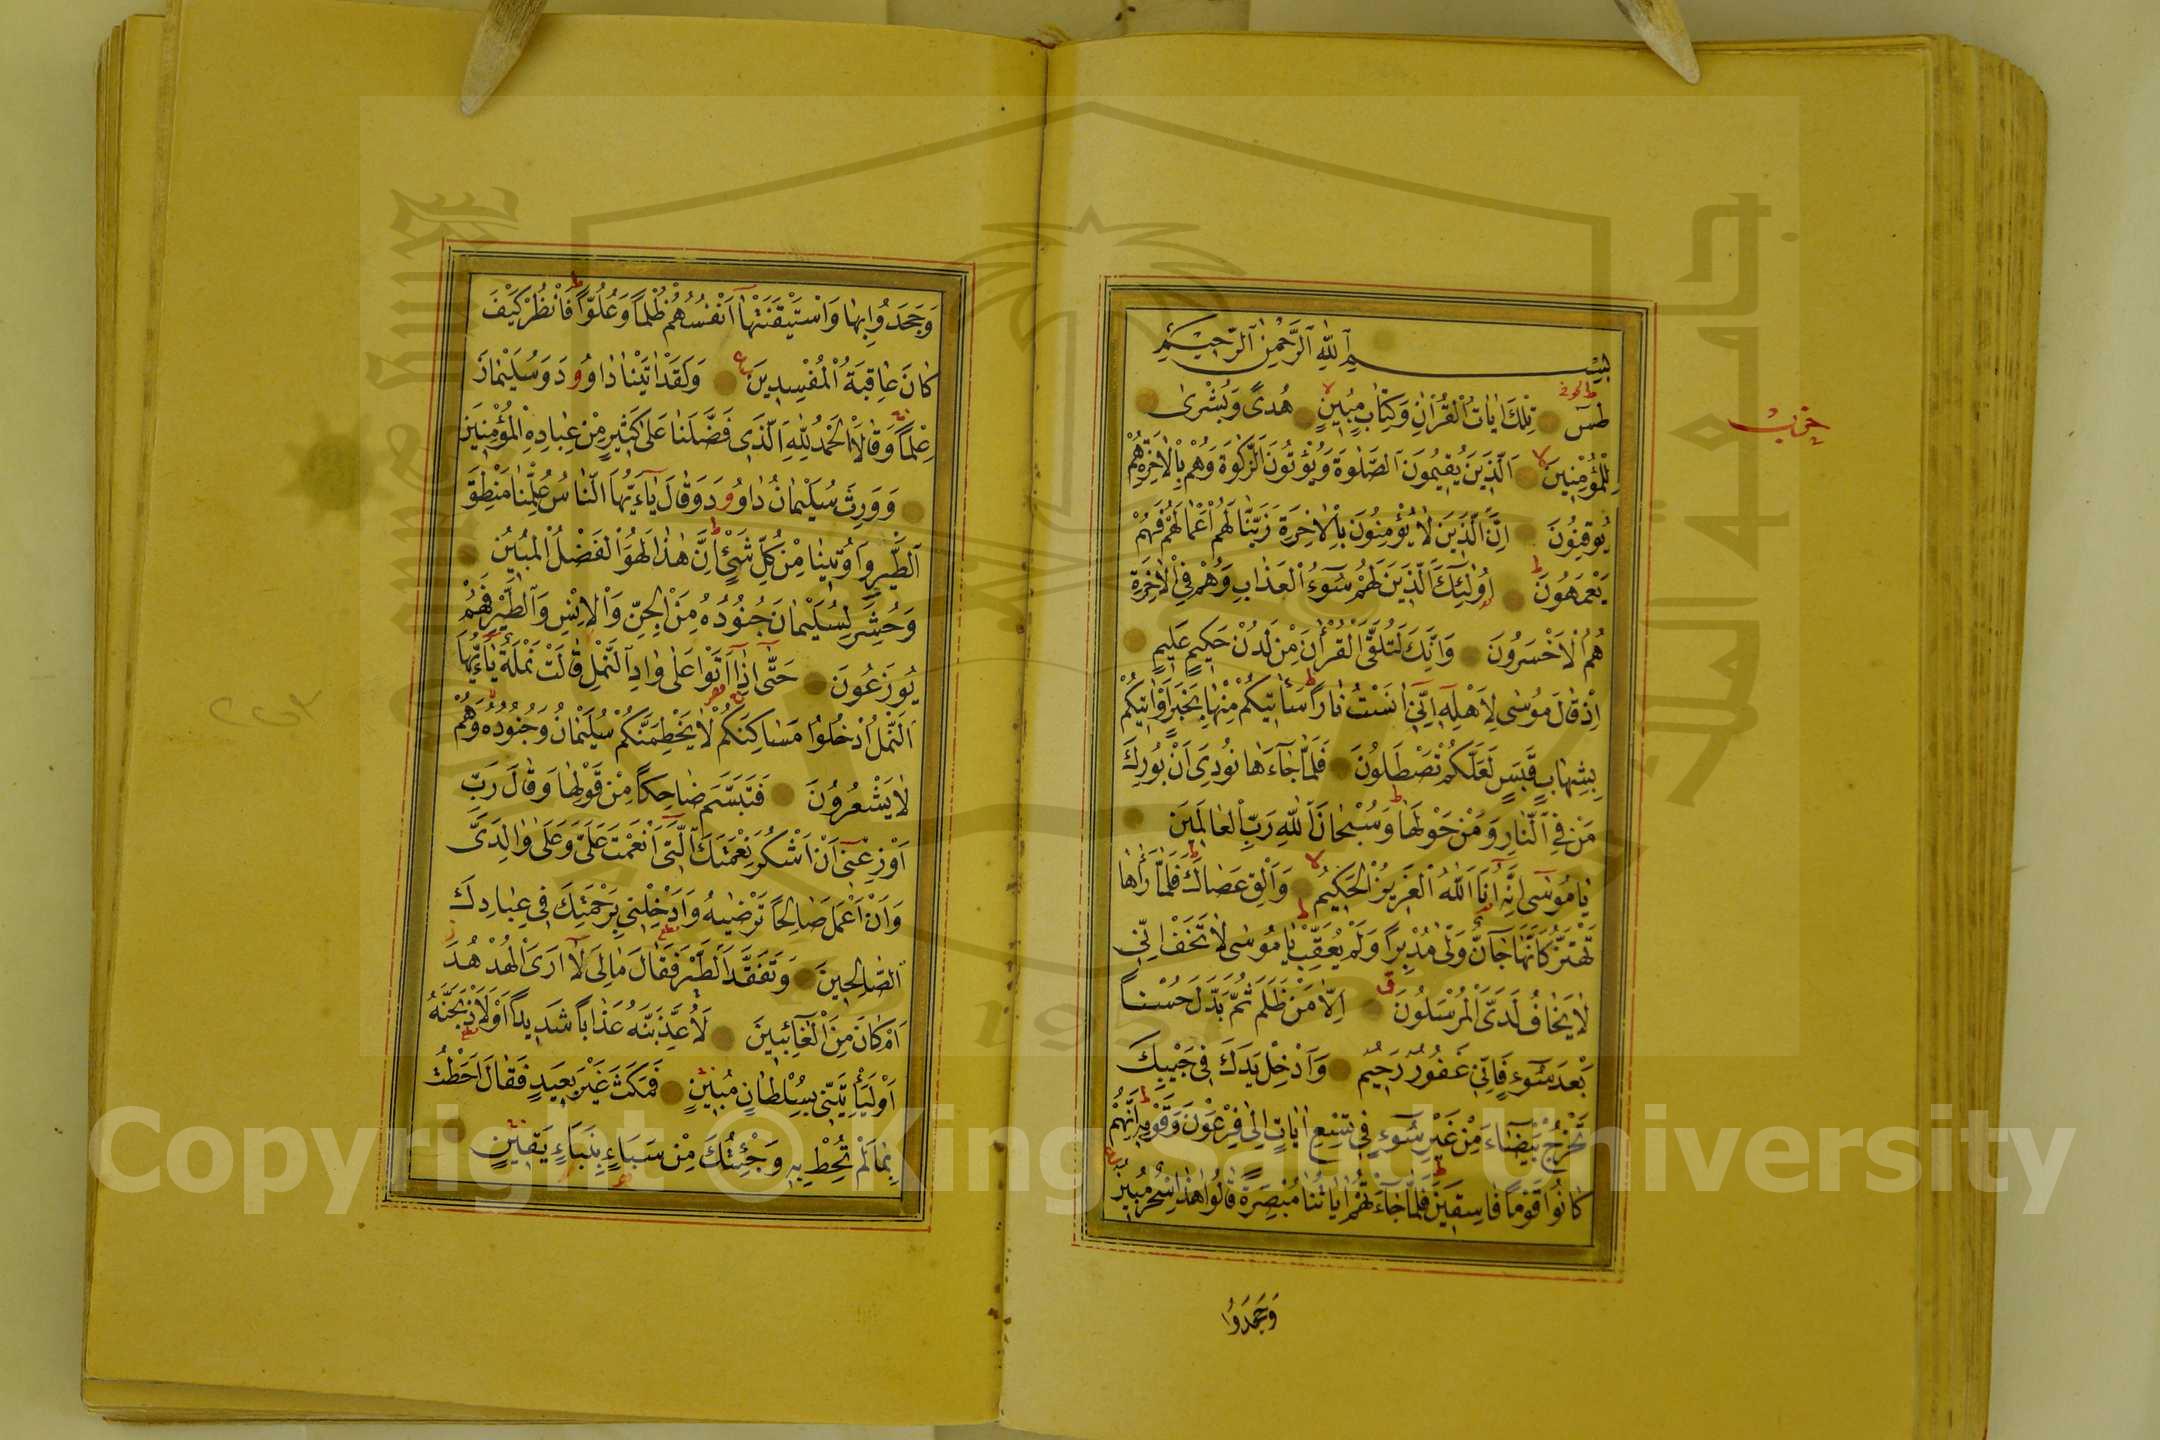 بِسْمِ ٱللّٰهِ ٱلرَّحْمٰنِ ٱلرَّحِيمِ
طٰسٓ تِلْكَ اٰيَاتُ الْقُرْاٰنِ وَكِتَابٍ مُبِينٍ هُدًى وَبُشْرٰى
لِلْمُؤْمِنِينَ اَلَّذِينَ يُقِيمُونَ الصَّلٰوةَ وَيُؤْتُونَ الزَّكٰوةَ وَهُمْ بِالْاٰخِرَةِ هُمْ
يُوقِنُونَ اِنَّ الَّذِينَ لَا يُؤْمِنُونَ بِالْاٰخِرَةِ زَيَّنَّا لَهُمْ اَعْمَالَهُمْ فَهُمْ
يَعْمَهُونَ اُولٰئِكَ الَّذِينَ لَهُمْ سُوءُ الْعَذَابِ وَهُمْ فِي الْاٰخِرَةِ
هُمُ الْاَخْسَرُونَ وَاِنَّكَ لَتُلَقَّى الْقُرْاٰنَ مِنْ لَدُنْ حَكِيمٍ عَلِيمٍ
اِذْ قَالَ مُوسٰى لِاَهْلِهِ اِنِّي اٰنَسْتُ نَارًا سَاٰتِيكُمْ مِنْهَا بِخَبَرٍ اَوْ اٰتِيكُمْ
بِشِهَابٍ قَبَسٍ لَعَلَّكُمْ تَصْطَلُونَ فَلَمَّا جَاءَهَا نُودِيَ اَنْ بُورِكَ
مَنْ فِي النَّارِ وَمَنْ حَوْلَهَا وَسُبْحَانَ اللّٰهِ رَبِّ الْعَالَمِينَ
يَا مُوسٰى اِنَّهُ اَنَا اللّٰهُ الْعَزِيزُ الْحَكِيمُ وَاَلْقِ عَصَاكَ فَلَمَّا رَاٰهَا
تَهْتَزُّ كَاَنَّهَا جَانٌّ وَلّٰى مُدْبِرًا وَلَمْ يُعَقِّبْ يَا مُوسٰى لَا تَخَفْ اِنِّي
لَا يَخَافُ لَدَيَّ الْمُرْسَلُونَ اِلَّا مَنْ ظَلَمَ ثُمَّ بَدَّلَ حُسْنًا
بَعْدَ سُوءٍ فَاِنِّي غَفُورٌ رَحِيمٌ وَاَدْخِلْ يَدَكَ فِي جَيْبِكَ
تَخْرُجْ بَيْضَاءَ مِنْ غَيْرِ سُوءٍ فِي تِسْعِ اٰيَاتٍ اِلٰى فِرْعَوْنَ وَقَوْمِهِ اِنَّهُمْ
كَانُوا قَوْمًا فَاسِقِينَ فَلَمَّا جَاءَتْهُمْ اٰيَاتُنَا مُبْصِرَةً قَالُوا هٰذَا سِحْرٌ مُبِينٌ
وَجَحَدُوا
حزب
وَجَحَدُوا بِهَا وَاسْتَيْقَنَتْهَا اَنْفُسُهُمْ ظُلْمًا وَعُلُوًّا فَانْظُرْ كَيْفَ
كَانَ عَاقِبَةُ الْمُفْسِدِينَ وَلَقَدْ اٰتَيْنَا دَاوُودَ وَسُلَيْمَانَ
عِلْمًا وَقَالَا الْحَمْدُ لِلّٰهِ الَّذِي فَضَّلَنَا عَلٰى كَثِيرٍ مِنْ عِبَادِهِ الْمُؤْمِنِينَ
وَوَرِثَ سُلَيْمَانُ دَاوُودَ وَقَالَ يَا اَيُّهَا النَّاسُ عُلِّمْنَا مَنْطِقَ
الطَّيْرِ وَاُوتِينَا مِنْ كُلِّ شَيْءٍ اِنَّ هٰذَا لَهُوَ الْفَضْلُ الْمُبِينُ
وَحُشِرَ لِسُلَيْمَانَ جُنُودُهُ مِنَ الْجِنِّ وَالْاِنْسِ وَالطَّيْرِ فَهُمْ
يُوزَعُونَ حَتّٰى اِذَا اَتَوْا عَلٰى وَادِ النَّمْلِ قَالَتْ نَمْلَةٌ يَا اَيُّهَا
النَّمْلُ ادْخُلُوا مَسَاكِنَكُمْ لَا يَحْطِمَنَّكُمْ سُلَيْمَانُ وَجُنُودُهُ وَهُمْ
لَا يَشْعُرُونَ فَتَبَسَّمَ ضَاحِكًا مِنْ قَوْلِهَا وَقَالَ رَبِّ
اَوْزِعْنِي اَنْ اَشْكُرَ نِعْمَتَكَ الَّتِي اَنْعَمْتَ عَلَيَّ وَعَلٰى وَالِدَيَّ
وَاَنْ اَعْمَلَ صَالِحًا تَرْضٰيهُ وَاَدْخِلْنِي بِرَحْمَتِكَ فِي عِبَادِكَ
الصَّالِحِينَ وَتَفَقَّدَ الطَّيْرَ فَقَالَ مَا لِيَ لَا اَرَى الْهُدْهُدَ
اَمْ كَانَ مِنَ الْغَائِبِينَ لَاُعَذِّبَنَّهُ عَذَابًا شَدِيدًا اَوْ لَاَاذْبَحَنَّهُ
اَوْ لَيَأْتِيَنِّي بِسُلْطَانٍ مُبِينٍ فَمَكَثَ غَيْرَ بَعِيدٍ فَقَالَ اَحَطْتُ
بِمَا لَمْ تُحِطْ بِهِ وَجِئْتُكَ مِنْ سَبَاءٍ بِنَبَاءٍ يَقِينٍ
Copyright © King Saud University